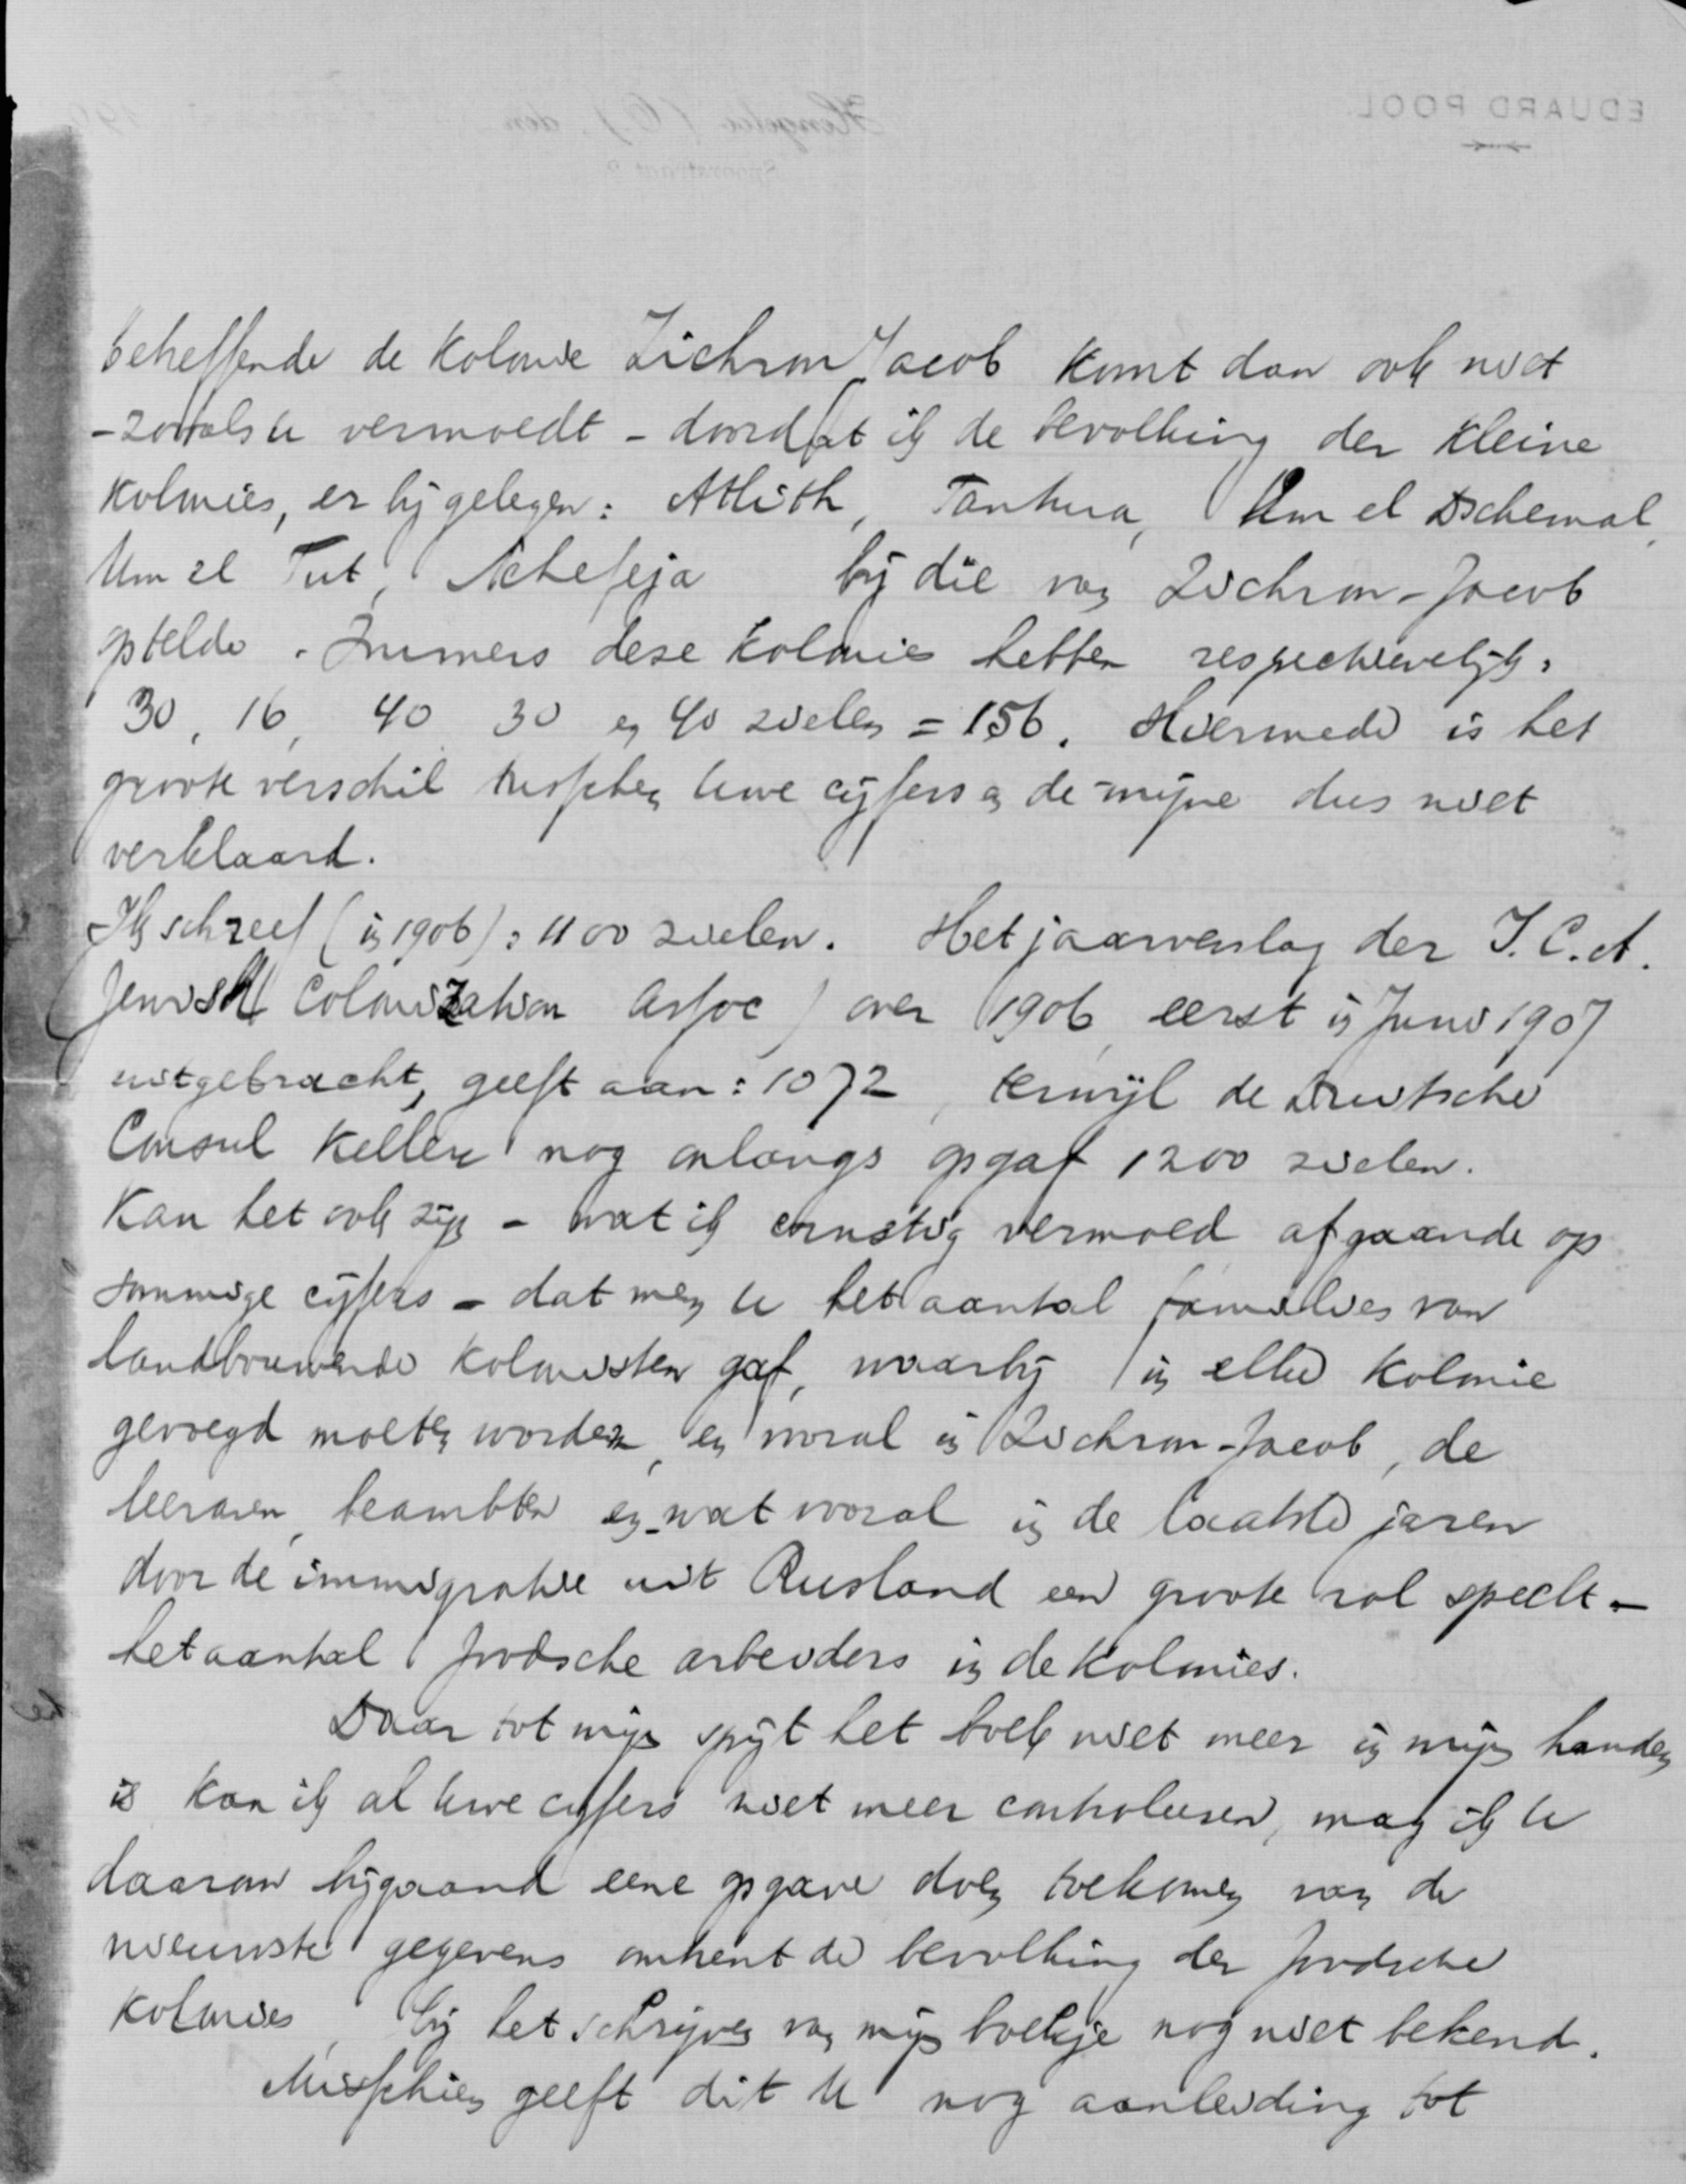 EDUARD POOL
Hengelo (O.), den 190
betreffende de kolonie Zichron Jacob komt dan ook niet
- zooals U vermoedt - doordat ik de bevolking der kleine
kolonies, er bij gelegen: Athlith, Tantura, Um el Dschemal,
Um el Tut, Schefeja bij die van Zichron-Jacob
optelde. Immers deze kolonies hebben respectievelijk:
30, 16, 40 30 en 40 zielen = 156. Hiermede is het
groote verschil tusschen Uwe cijfers en de mijne dus niet
verklaard.
Ik schreef (in 1906): 1100 zielen. Het jaarverslag der I.C.A.
(Jewish Colonization Assoc) over 1906, eerst in Juni 1907
uitgebracht, geeft aan: 1072, terwijl de Duitsche
Consul Keller nog onlangs opgaf 1200 zielen.
Kan het ook zijn - wat ik ernstig vermoed afgaande op
sommige cijfers - dat men U het aantal families van
landbouwende kolonisten gaf, waarbij in elke kolonie
gevoegd moeten worden, en vooral in Zichron-Jacob, de
leeraren, beambten en - wat vooral in de laatste jaren
door de immigratie uit Rusland een groote rol speelt -
het aantal Joodsche arbeiders in de kolonies.
Daar tot mijn spijt het boek niet meer in mijn handen
is kan ik al Uwe cijfers niet meer controleeren, mag ik U
daarom bijgaand eene opgave doen toekomen van de
nieuwste gegevens omtrent de bevolking der Joodsche
kolonies, bij het schrijven van mijn boekje nog niet bekend.
Misschien geeft dit U nog aanleiding tot